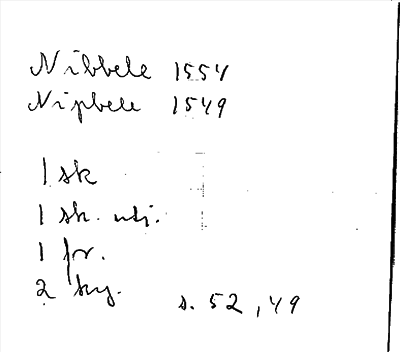 Nibbele 1554
Nipbele 1549
1 sk
1 sk. utj.
1 fr.
2 ky. s. 52, 49